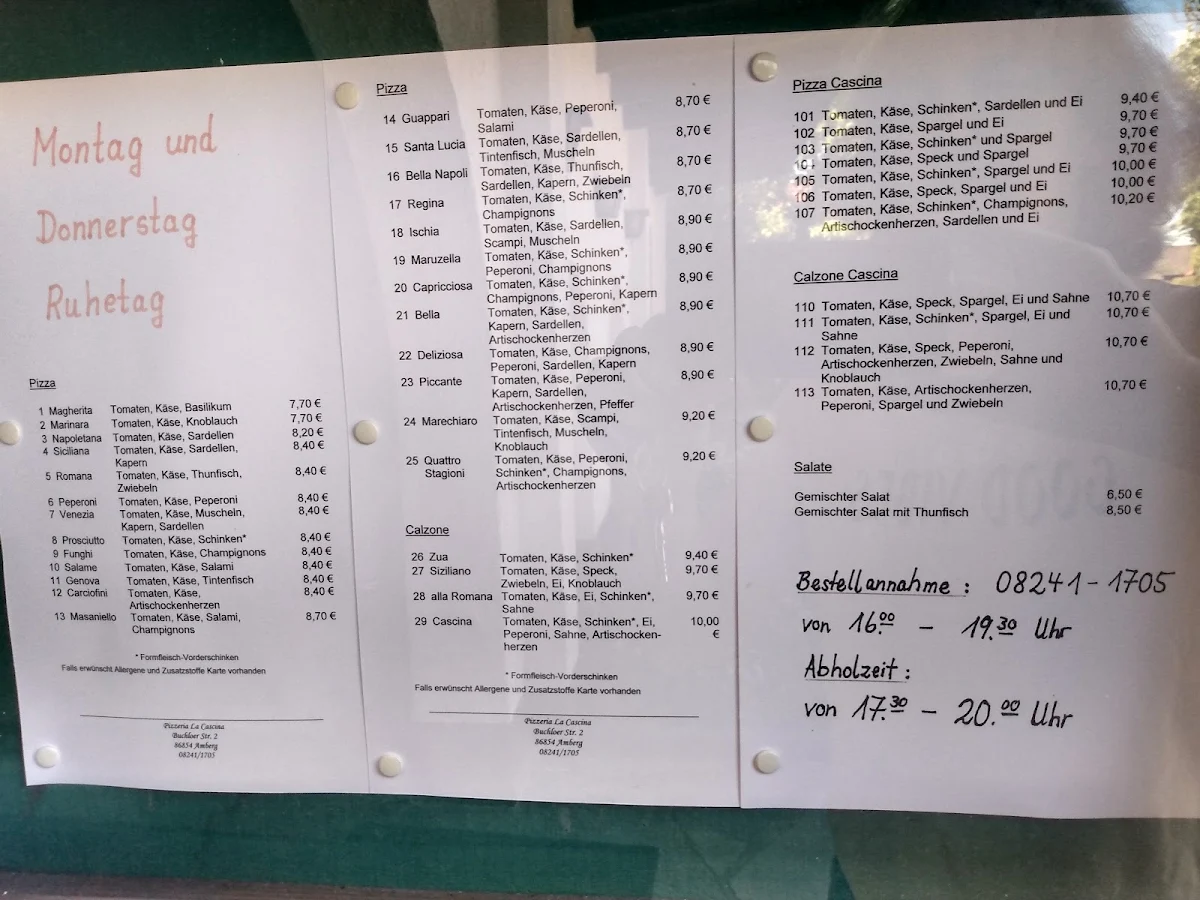 Montag und
Donnerstag
Ruhetag
Pizza
1 Magherita Tomaten, Käse, Basilikum 7,70 €
2 Marinara Tomaten, Käse, Knoblauch 7,70 €
3 Napoletana Tomaten, Käse, Sardellen 8,20 €
4 Siciliana Tomaten, Käse, Sardellen, 8,40 €
Kapern
5 Romana Tomaten, Käse, Thunfisch, 8,40 €
Zwiebeln
6 Peperoni Tomaten, Käse, Peperoni 8,40 €
7 Venezia Tomaten, Käse, Muscheln, 8,40 €
Kapern, Sardellen
8 Prosciutto Tomaten, Käse, Schinken* 8,40 €
9 Funghi Tomaten, Käse, Champignons 8,40 €
10 Salame Tomaten, Käse, Salami 8,40 €
11 Genova Tomaten, Käse, Tintenfisch 8,40 €
12 Carciofini Tomaten, Käse, 8,40 €
Artischockenherzen
13 Masaniello Tomaten, Käse, Salami, 8,70 €
Champignons
* Formfleisch-Vorderschinken
Falls erwünscht Allergene und Zusatzstoffe Karte vorhanden
Pizzeria La Cascina
Buchloer Str. 2
86854 Amberg
08241/1705
Pizza
14 Guappari Tomaten, Käse, Peperoni, 8,70 €
Salami
15 Santa Lucia Tomaten, Käse, Sardellen, 8,70 €
Tintenfisch, Muscheln
16 Bella Napoli Tomaten, Käse, Thunfisch, 8,70 €
Sardellen, Kapern, Zwiebeln
17 Regina Tomaten, Käse, Schinken*, 8,70 €
Champignons
18 Ischia Tomaten, Käse, Sardellen, 8,90 €
Scampi, Muscheln
19 Maruzella Tomaten, Käse, Schinken*, 8,90 €
Peperoni, Champignons
20 Capricciosa Tomaten, Käse, Schinken*, 8,90 €
Champignons, Peperoni, Kapern
21 Bella Tomaten, Käse, Schinken*, 8,90 €
Kapern, Sardellen,
Artischockenherzen
22 Deliziosa Tomaten, Käse, Champignons, 8,90 €
Peperoni, Sardellen, Kapern
23 Piccante Tomaten, Käse, Peperoni, 8,90 €
Kapern, Sardellen,
Artischockenherzen, Pfeffer
24 Marechiaro Tomaten, Käse, Scampi, 9,20 €
Tintenfisch, Muscheln,
Knoblauch
25 Quattro Tomaten, Käse, Peperoni, 9,20 €
Stagioni Schinken*, Champignons,
Artischockenherzen
Calzone
26 Zua Tomaten, Käse, Schinken* 9,40 €
27 Siziliano Tomaten, Käse, Speck, 9,70 €
Zwiebeln, Ei, Knoblauch
28 alla Romana Tomaten, Käse, Ei, Schinken*, 9,70 €
Sahne
29 Cascina Tomaten, Käse, Schinken*, Ei, 10,00
Peperoni, Sahne, Artischocken- €
herzen
* Formfleisch-Vorderschinken
Falls erwünscht Allergene und Zusatzstoffe Karte vorhanden
Pizzeria La Cascina
Buchloer Str. 2
86854 Amberg
08241/1705
Pizza Cascina
101 Tomaten, Käse, Schinken*, Sardellen und Ei 9,40 €
102 Tomaten, Käse, Spargel und Ei 9,70 €
103 Tomaten, Käse, Schinken* und Spargel 9,70 €
104 Tomaten, Käse, Speck und Spargel 9,70 €
105 Tomaten, Käse, Schinken*, Spargel und Ei 10,00 €
106 Tomaten, Käse, Speck, Spargel und Ei 10,00 €
107 Tomaten, Käse, Schinken*, Champignons, 10,20 €
Artischockenherzen, Sardellen und Ei
Calzone Cascina
110 Tomaten, Käse, Speck, Spargel, Ei und Sahne 10,70 €
111 Tomaten, Käse, Schinken*, Spargel, Ei und 10,70 €
Sahne
112 Tomaten, Käse, Speck, Peperoni, 10,70 €
Artischockenherzen, Zwiebeln, Sahne und
Knoblauch
113 Tomaten, Käse, Artischockenherzen, 10,70 €
Peperoni, Spargel und Zwiebeln
Salate
Gemischter Salat 6,50 €
Gemischter Salat mit Thunfisch 8,50 €
Bestellannahme: 08241-1705
von 16.00 - 19.30 Uhr
Abholzeit:
von 17.30 - 20.00 Uhr